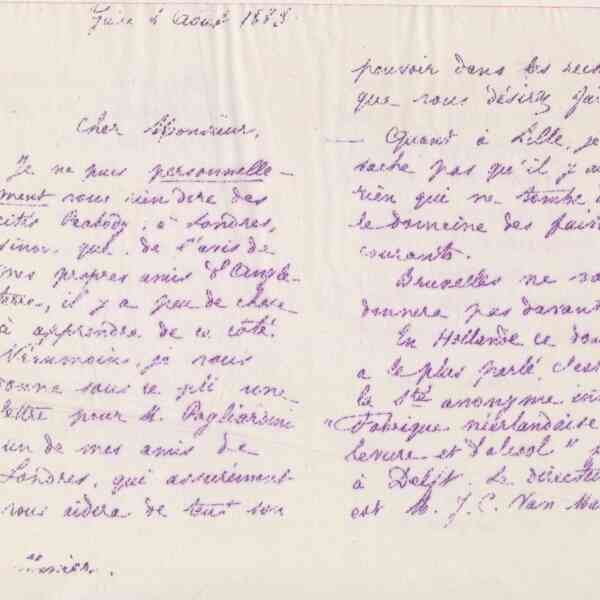 Août 1883.
Cher Monsieur,
Je ne puis personnelle-
ment vous rien dire des
cités Peabody, à Londres,
sinon que, de l'avis de
mes propres amis d'Angle-
terre, il y a peu de chose
à apprendre de ce côté.
Néanmoins, je vous
donne sous ce pli une
lettre pour M. Pagliardini
un de mes amis de
Londres, qui assurément
vous aidera de tout son
pouvoir dans les
que vous désirez
— Quant à Lille, je
sache pas qu'il y
rien qui ne tombe
le domaine des
courants.
Bruxelles ne
donnera pas
En Hollande ce
a le plus parlé, c'est
la Sté anonyme
"Fabrique néerlandaise
levure et d'alcool"
à Delft. Le
est M. J. C. Van